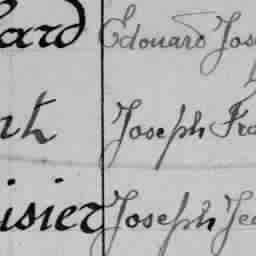 ard Edouard Jos
nt Joseph Fra
isier Joseph Jea